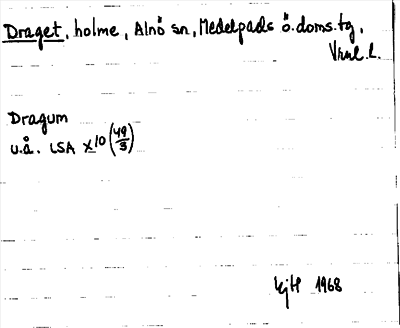 Draget, holme, Alnö sn, Medelpads ö. doms. tg,
Vnl. l.
Dragum
u.å. LSA X 10 (49/3)
KjH 1968